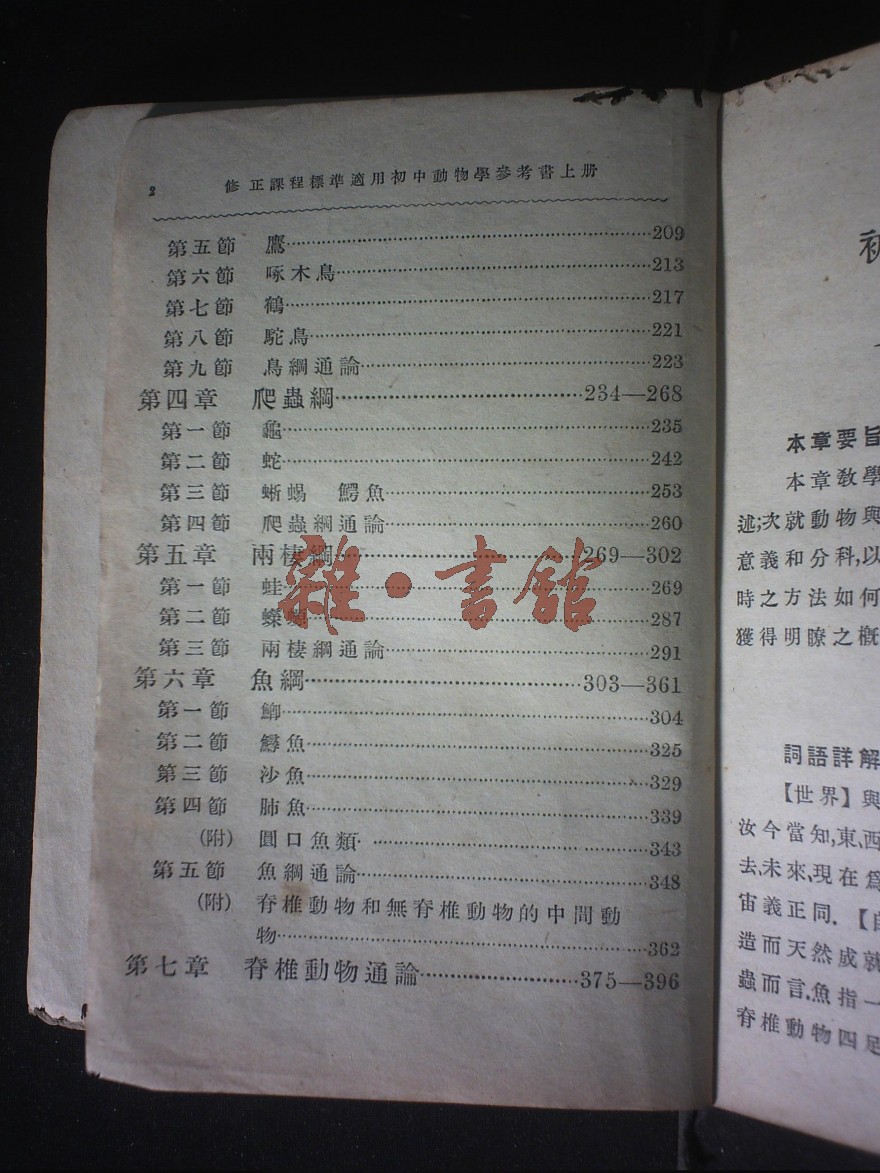 2 修正課程標準適用初中動物學參考書上册
第五節 鷹 209
第六節 啄木鳥 213
第七節 鶴 217
第八節 駝鳥 221
第九節 鳥綱通論 223
第四章 爬蟲綱 234—268
第一節 龜 235
第二節 蛇 242
第三節 蜥蜴 鰐魚 253
第四節 爬蟲綱通論 260
第五章 兩棲綱 269—302
第一節 蛙 269
第二節 蠑螈 287
第三節 兩棲綱通論 291
第六章 魚綱 303—361
第一節 鯽 304
第二節 鱘魚 325
第三節 沙魚 329
第四節 肺魚 339
(附) 圓口魚類 343
第五節 魚綱通論 348
(附) 脊椎動物和無脊椎動物的中間動
物 362
第七章 脊椎動物通論 375—396
雜·書館
初
本章要旨
本章教學
述;次就動物與
意義和分科,以
時之方法如何
獲得明瞭之概
詞語詳解
【世界】與
汝今當知,東,西
去,未來,現在爲
宙義正同.【自
造而天然成就
蟲而言.魚指一
脊椎動物四足